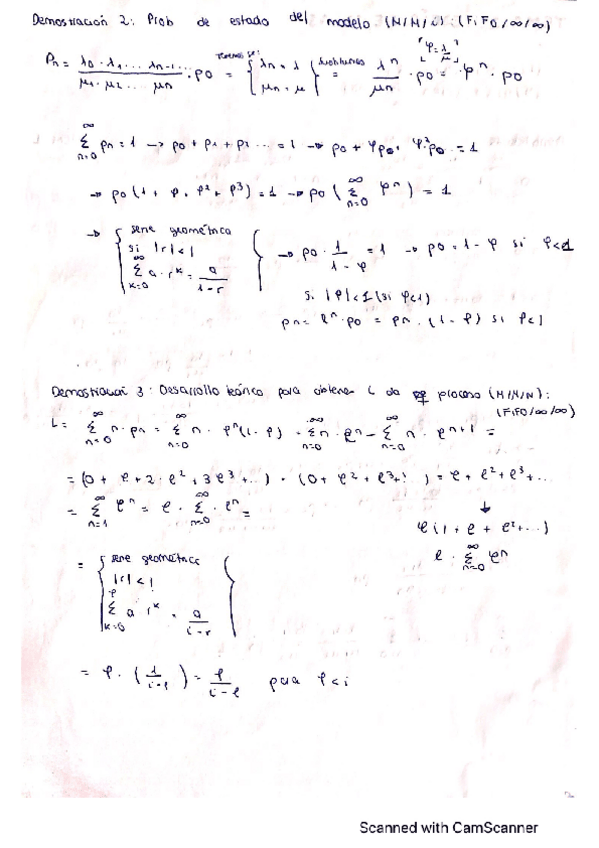 Demostración 2: Prob de estado del modelo (M/M/1): (FIFO/∞/∞)
Pn = λ0·λ1... λn-1... / μ1·μ2... μn · p0 = { λn = λ μn = μ } = λ^n / μn · p0 = φ^n · p0 [φ = λ/μ]
∞ Σ n=0 pn = 1 → p0 + p1 + p2 ... = 1 → p0 + φp0 + φ²p0 = 1
→ p0 (1 + φ + φ² + φ³) = 1 → p0 ( ∞ Σ n=0 φ^n ) = 1
→ { serie geométrica si |r| < 1 ∞ Σ k=0 a·r^k = a / 1-r } → p0 · 1 / 1-φ = 1 → p0 = 1-φ si φ<1
si |φ| < 1 (si φ<1)
pn = φ^n · p0 = pn · (1-φ) si φ<1
Demostración 3: Desarrollo teórico para obtener L do proceso (M/M/N):
(FIFO/∞/∞)
L = ∞ Σ n=0 n·pn = ∞ Σ n=0 n · φ^n (1-φ) = ∞ Σ n=0 n · φ^n - ∞ Σ n=0 n · φ^n+1 =
= (0 + φ + 2·φ² + 3φ³ + ...) - (0 + φ² + φ³ + ) = φ + φ² + φ³ + ...
= ∞ Σ n=1 φ^n = φ · ∞ Σ n=0 · φ^n =
↓
φ(1 + φ + φ² + ...)
φ · ∞ Σ n=0 φ^n
= { serie geométrica
|r| < 1
Σ k=0 a r^k = a / 1-r }
= φ · (1 / 1-φ) = φ / 1-φ para φ < 1
Scanned with CamScanner